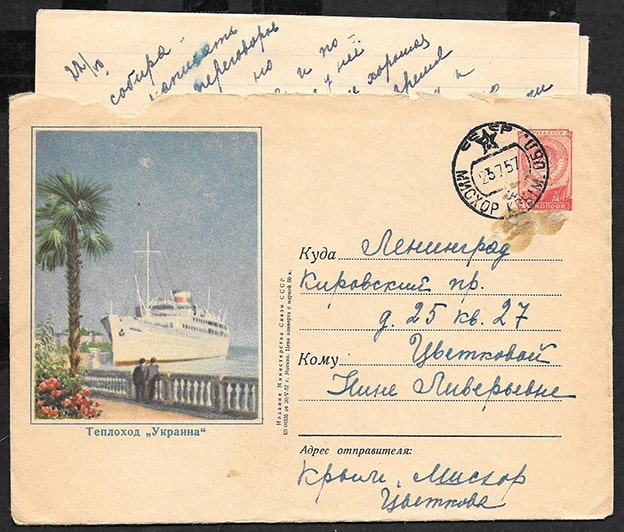 22/VII
собира-
написать
переговоров
но и по
у неё
хорошая
время
и
СССР
МИСХОР КРЫМ. ОБЛ.
23.7.57
ПОЧТА СССР
40 КОПЕЕК
Куда Ленинград
Кировский пр.
д. 25 кв. 27
Кому Цветковой
Нине Ливерьевне
Адрес отправителя:
Крым, Мисхор
Цветкова
Издание Министерства Связи СССР
г. Москва. Цена конверта с маркой 50 к.
Теплоход „Украина“